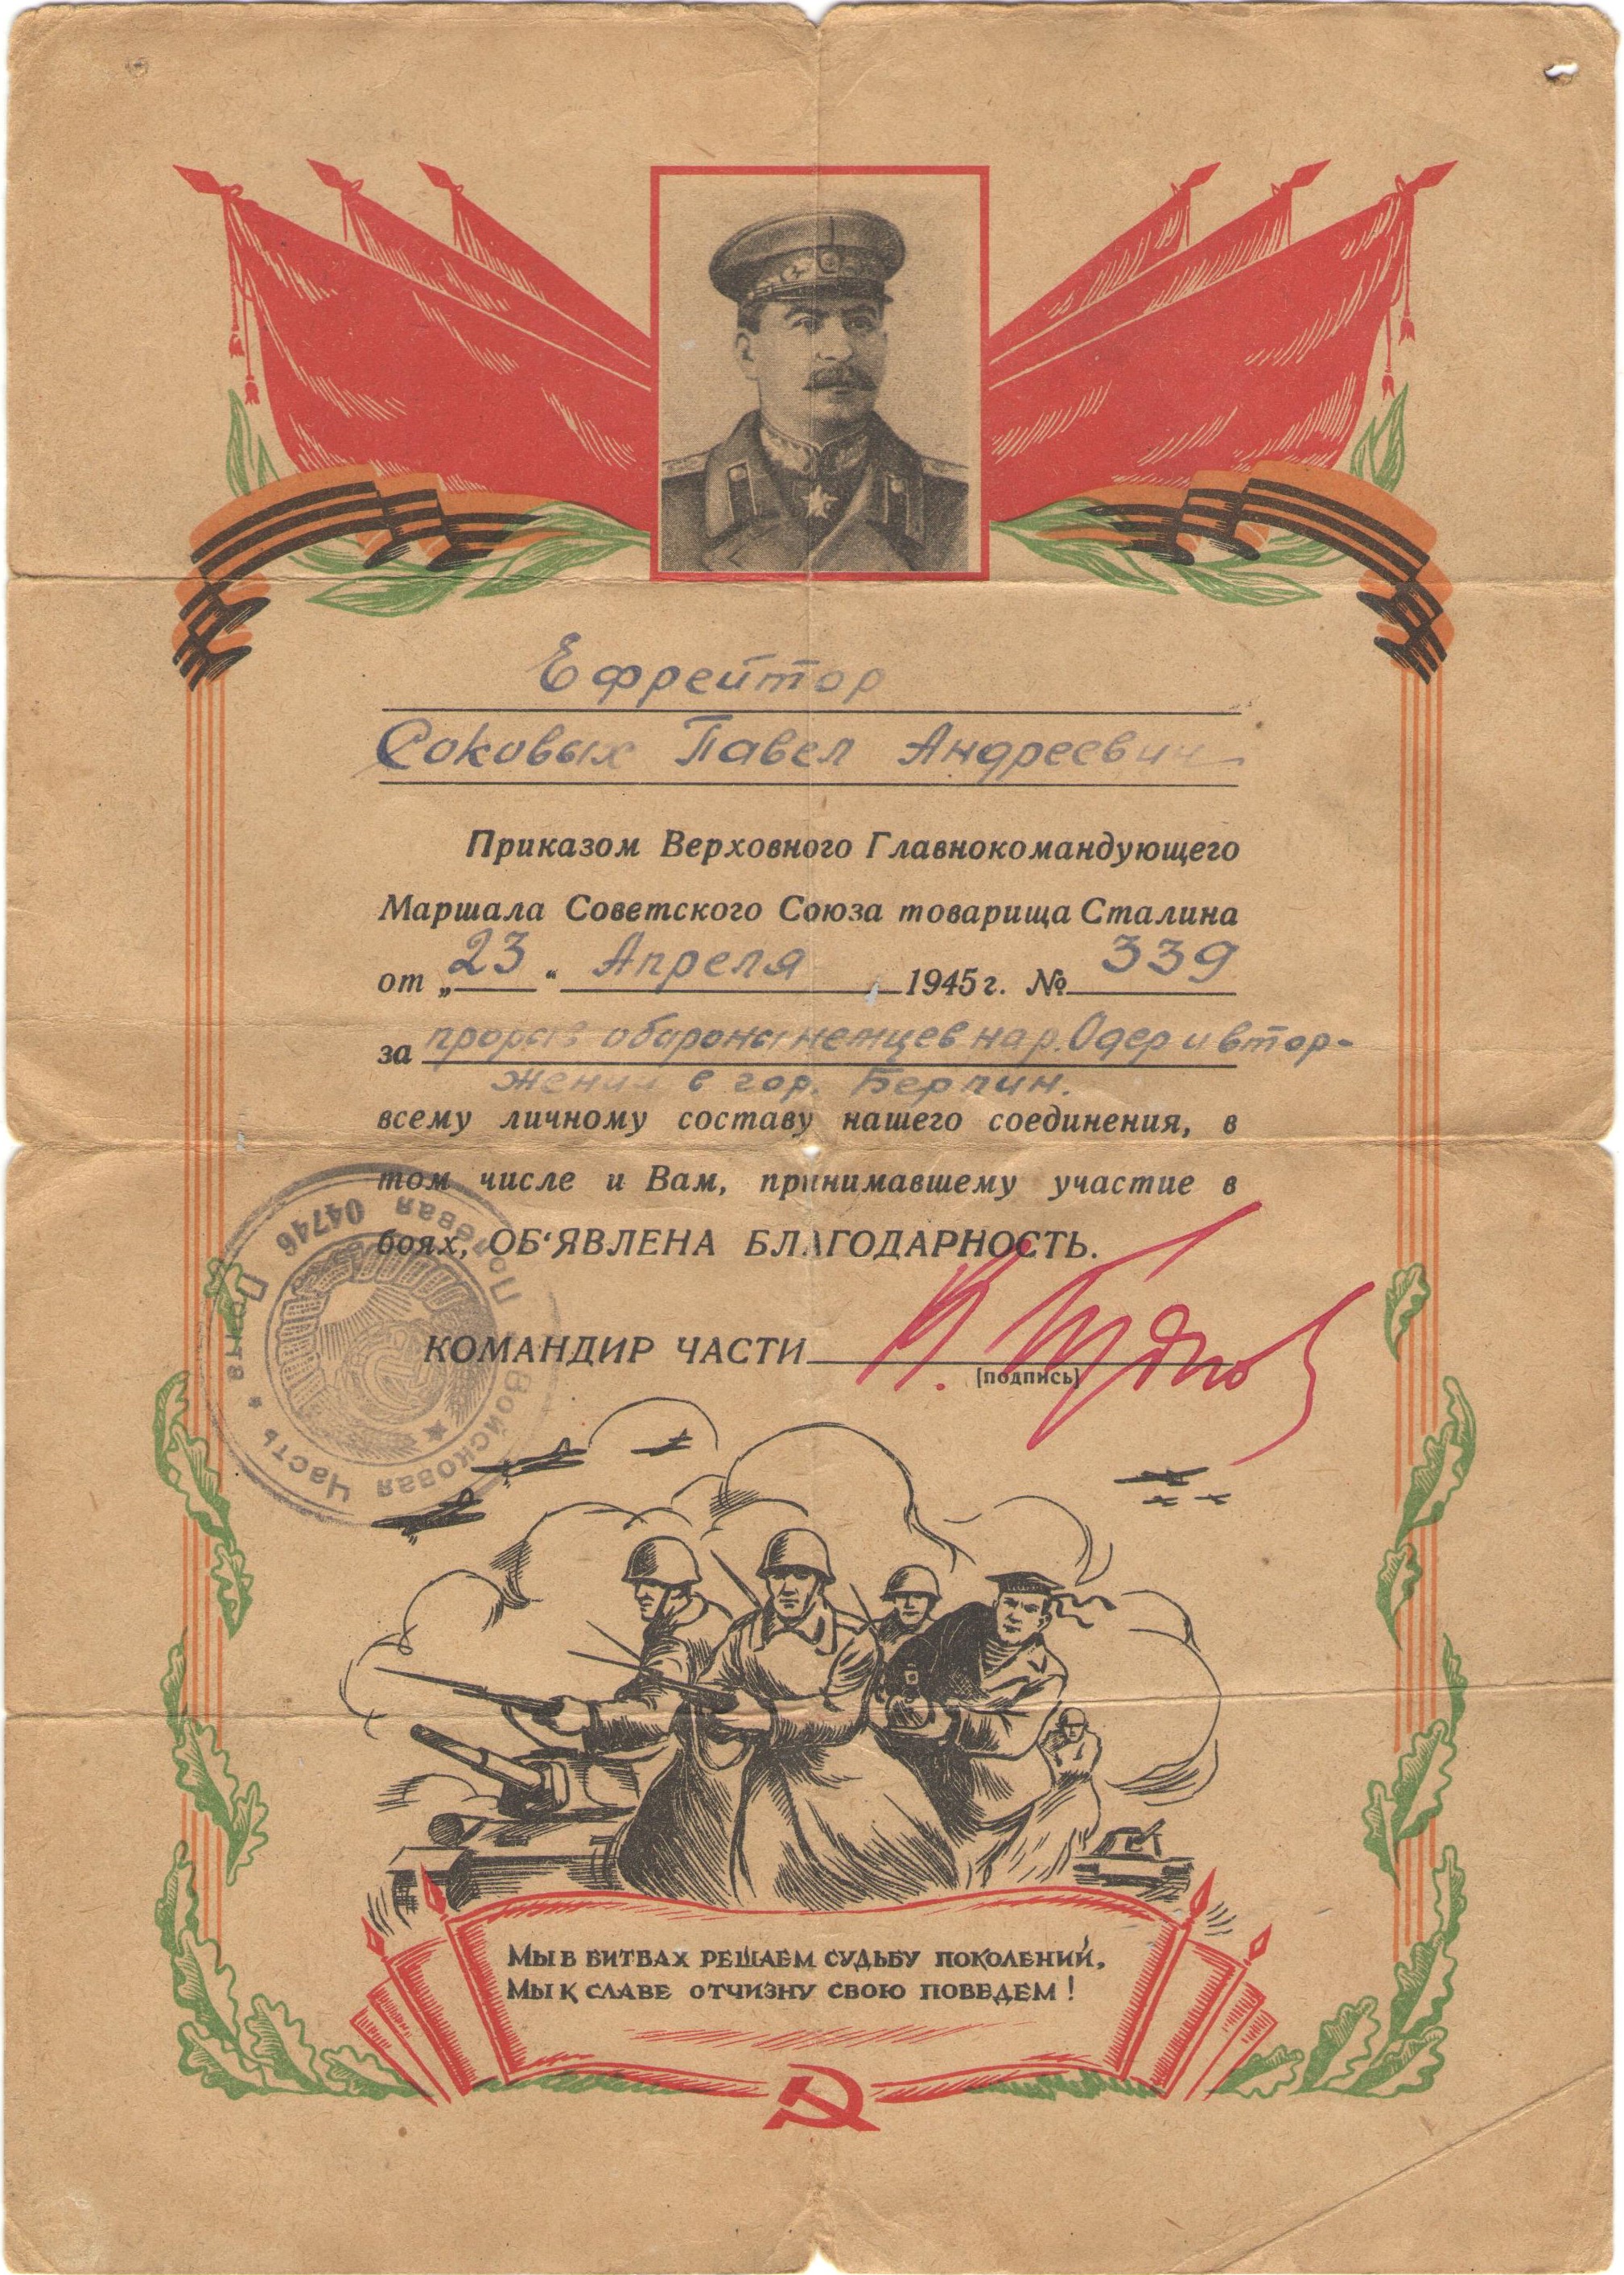 Ефрейтор
Соковых Павел Андреевич
Приказом Верховного Главнокомандующего
Маршала Советского Союза товарища Сталина
от „23“ Апреля 1945 г. № 339
за прорыв обороны немцев на р. Одер и втор-
жении в гор. Берлин.
всему личному составу нашего соединения, в
том числе и Вам, принимавшему участие в
боях, ОБ'ЯВЛЕНА БЛАГОДАРНОСТЬ.
КОМАНДИР ЧАСТИ
(подпись)
Войсковая Часть * Полевая Почта 04746
МЫ В БИТВАХ РЕШАЕМ СУДЬБУ ПОКОЛЕНИЙ,
МЫ К СЛАВЕ ОТЧИЗНУ СВОЮ ПОВЕДЕМ!